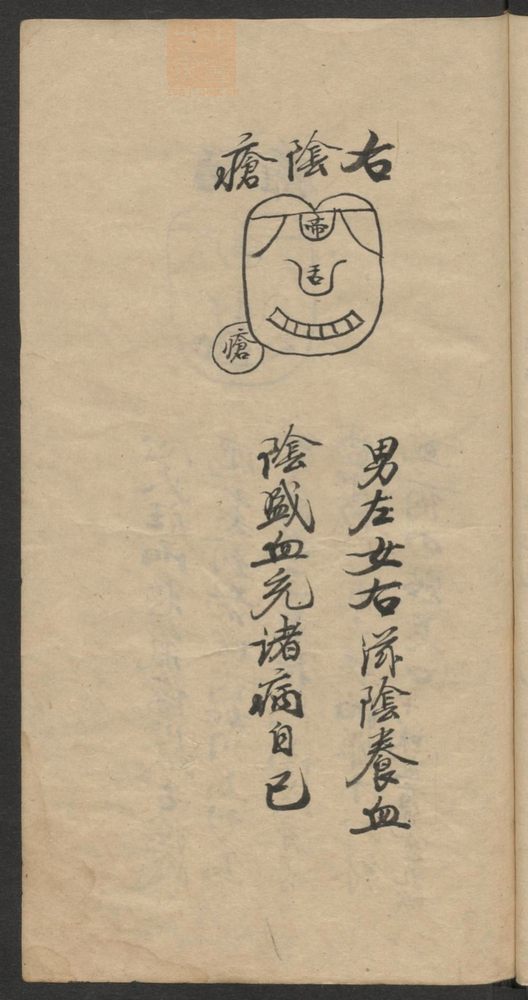 右陰瘡
帝
舌
瘡
男左女右滋陰養血
陰盛血充諸病自已